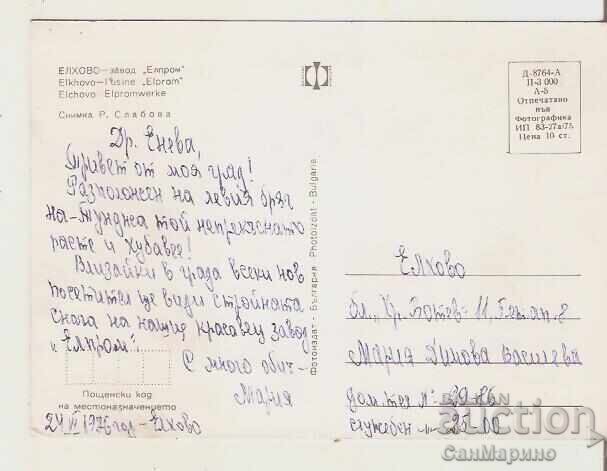 ЕЛХОВО — завод „Елпром“
Elkhovo — l'usine „Elprom“
Elchovo Elpromwerke
Снимка Р. Слабова
Др. Енева,
Привет от моя град!
Разположен на левия бряг
на Тунджа той непрекъснато
расте и хубавее!
Влизайки в града всеки нов
посетител ще види стройната
снага на нашия красавец завод
„Елпром“.
С много обич –
Мария
Пощенски код
на местоназначението
1976 год – Елхово
Фотоиздат - България Photoizdat - Bulgaria
Д-8764-А
П-3 000
А-5
Отпечатано
във
Фотографика
ИП 83-27а/75
Цена 10 ст.
Елхово
бл. „Хр. Ботев – 11, ап. 8
Мария Димова Василева
дом. тел. №
служебен –
auction
СанМарино